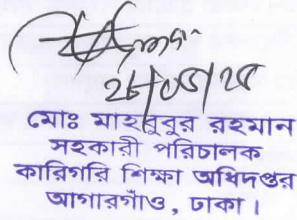 মোঃ মাহবুবুর রহমান
সহকারী পরিচালক
কারিগরি শিক্ষা অধিদপ্তর
আগারগাঁও, ঢাকা।